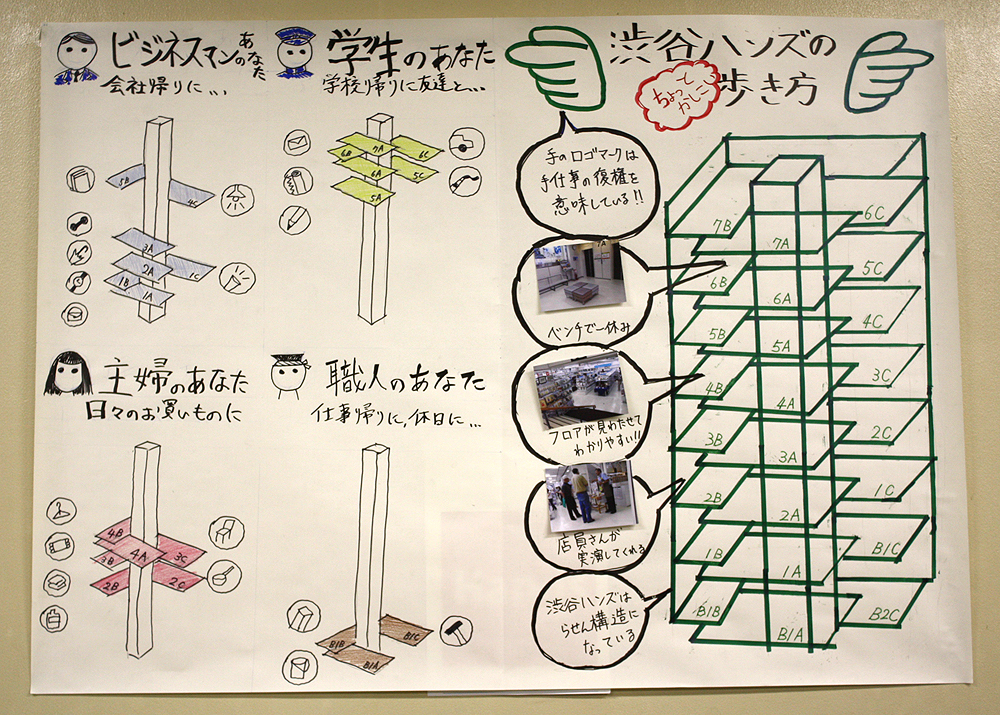 ビジネスマンのあなた
会社帰りに…
5B
4C
3A
2A
1C
1B
1A
学生のあなた
学校帰りに友達と…
7A
6B
6C
6A
5C
5A
主婦のあなた
日々のお買いものに
4B
4A
3C
3B
2B
2C
職人のあなた
仕事帰りに,休日に…
B1B
B1C
B1A
渋谷ハンズの
ちょっと
かしこい
歩き方
手のロゴマークは
手仕事の復権を
意味している!!
ベンチで一休み
フロアが見わたせて
わかりやすい!!
店員さんが
実演してくれる
渋谷ハンズは
らせん構造に
なっている
7B
7A
6C
6B
6A
5C
5B
5A
4C
4B
4A
3C
3B
3A
2C
2B
2A
1C
1B
1A
B1C
B1B
B1A
B2C